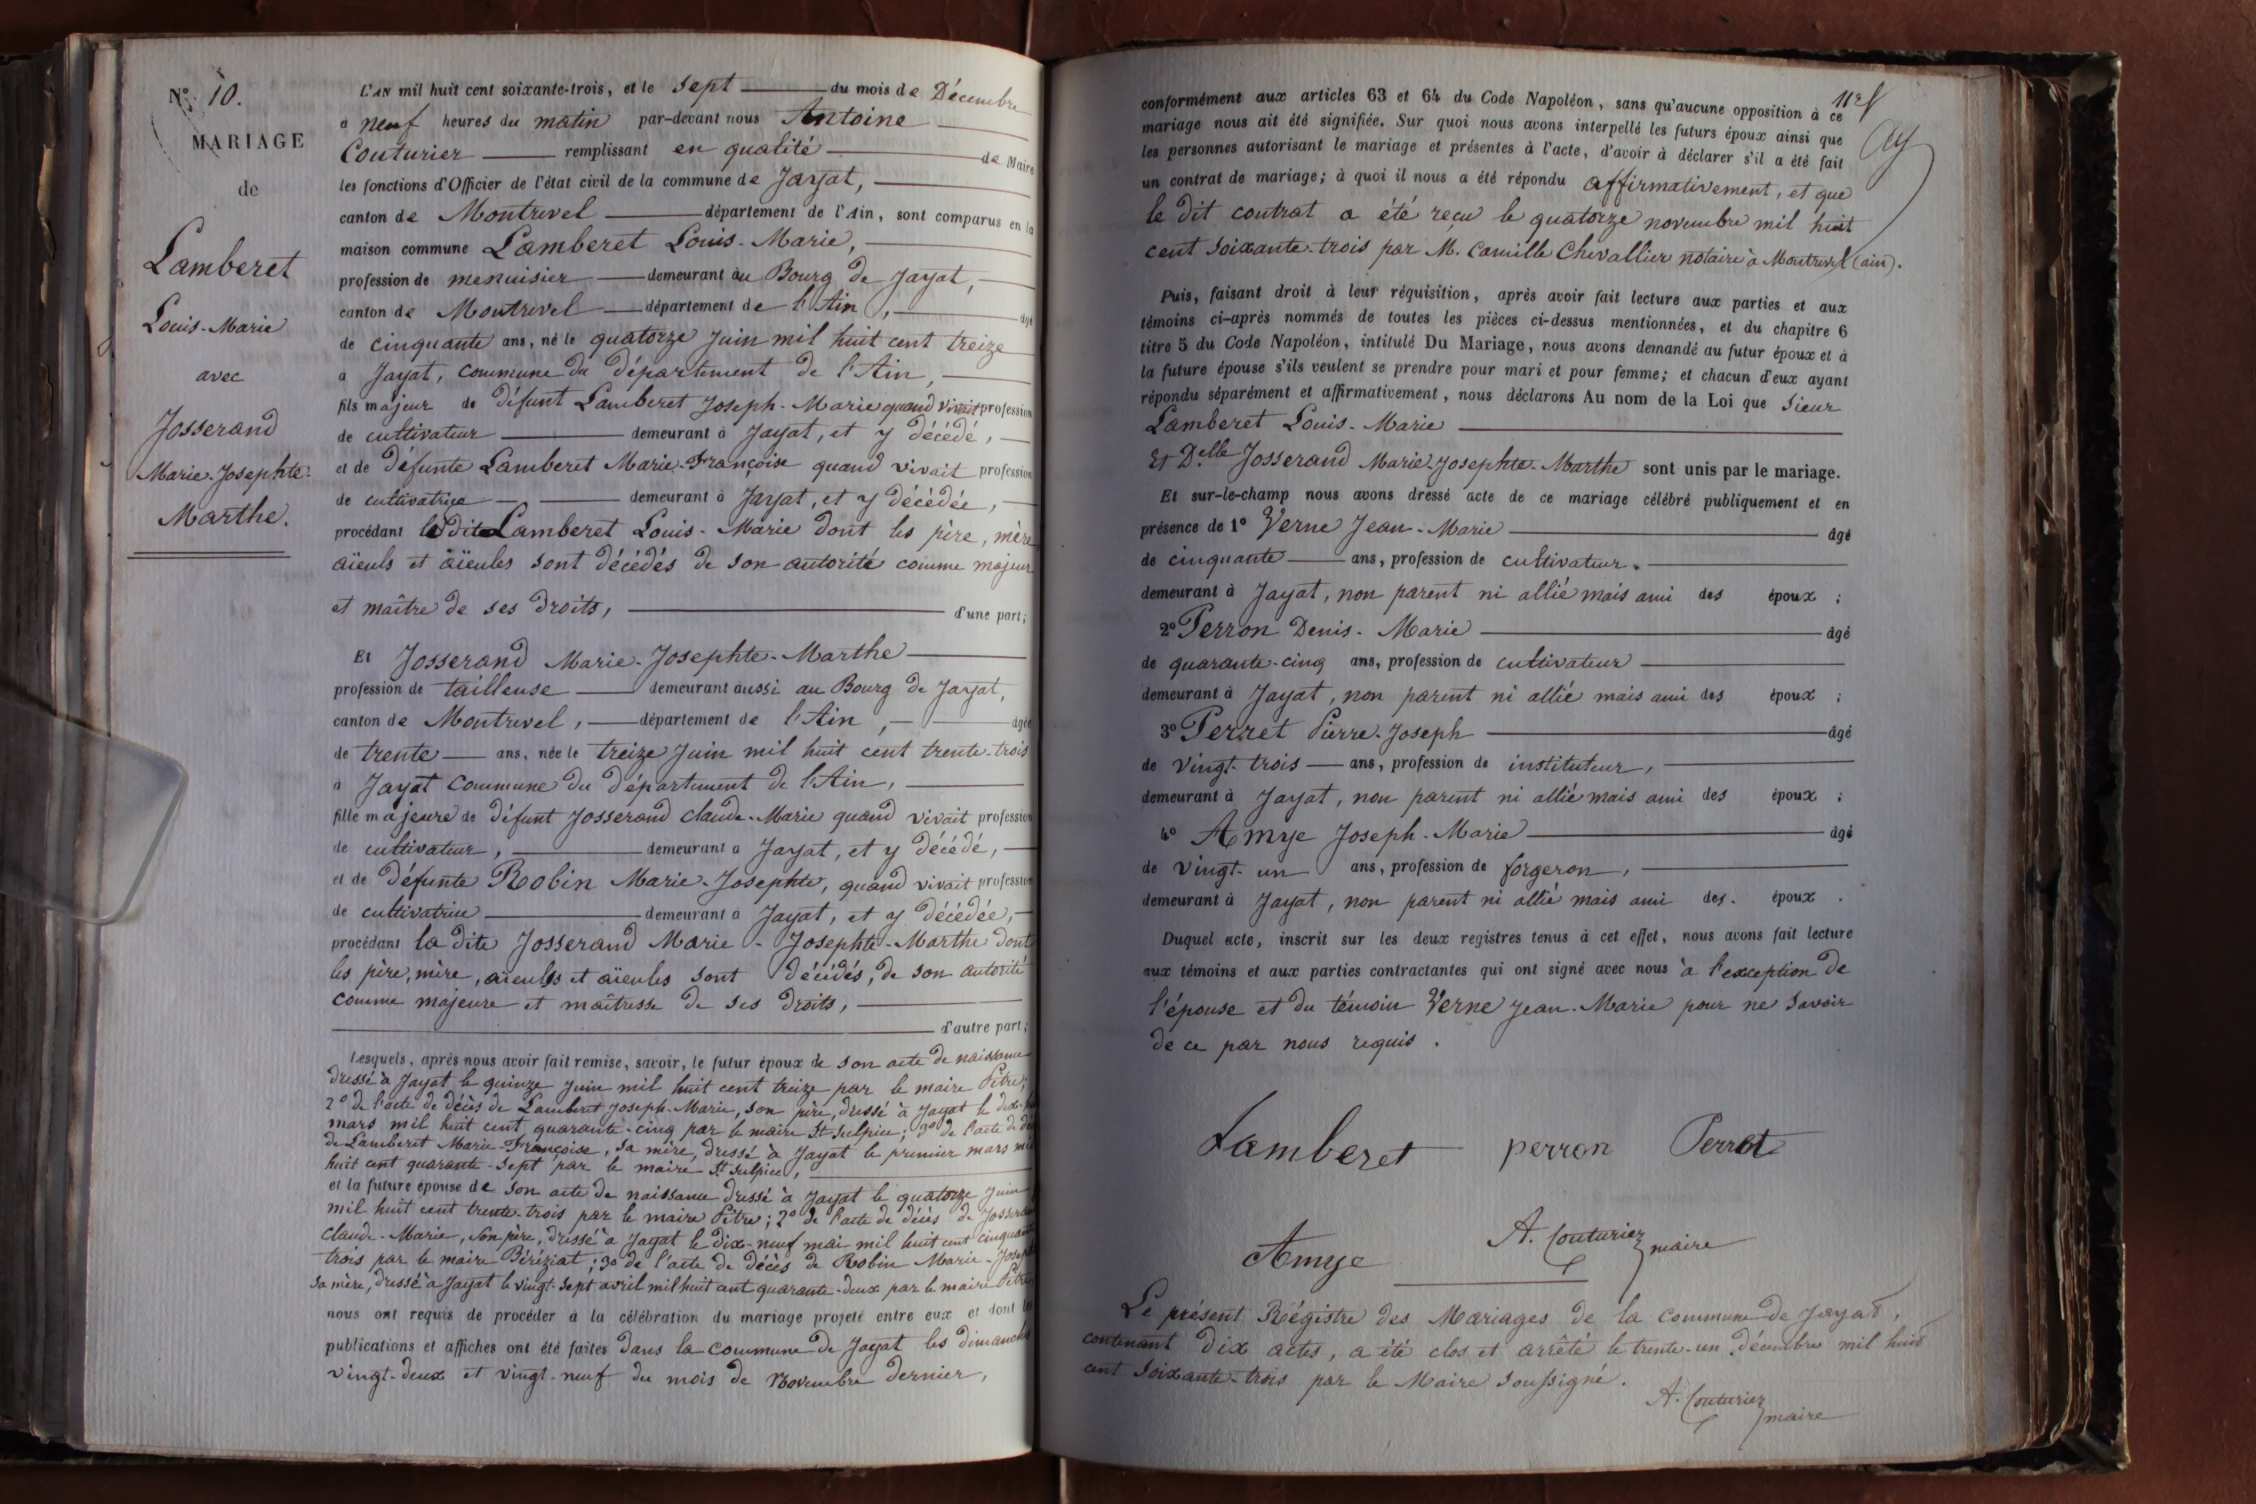 N° 10.
MARIAGE
de
Lamberet
Louis-Marie
avec
Josserand
Marie-Josephte-
Marthe.
L'AN mil huit cent soixante-trois, et le sept du mois de Décembre
à neuf heures du matin par-devant nous Antoine
Couturier remplissant en qualité de Maire
les fonctions d'Officier de l'état civil de la commune de Jayat,
canton de Montrevel département de l'Ain, sont comparus en la
maison commune Lamberet Louis-Marie,
profession de menuisier demeurant au Bourg de Jayat,
canton de Montrevel département de l'Ain, âgé
de cinquante ans, né le quatorze Juin mil huit cent treize
à Jayat, commune du département de l'Ain,
fils majeur de défunt Lamberet Joseph-Marie quand vivait profession
de cultivateur demeurant à Jayat, et y décédé,
et de défunte Lamberet Marie-Françoise quand vivait profession
de cultivatrice demeurant à Jayat, et y décédée,
procédant le dit Lamberet Louis-Marie dont les père, mère
aïeuls et aïeules sont décédés de son autorité comme majeur
et maître de ses droits, d'une part;
Et Josserand Marie-Josephte-Marthe
profession de tailleuse demeurant aussi au Bourg de Jayat,
canton de Montrevel, département de l'Ain, âgée
de trente ans, née le treize Juin mil huit cent trente-trois
à Jayat commune du département de l'Ain,
fille majeure de défunt Josserand Claude-Marie quand vivait profession
de cultivateur, demeurant à Jayat, et y décédé,
et de défunte Robin Marie-Josephte, quand vivait profession
de cultivatrice demeurant à Jayat, et y décédée,
procédant la dite Josserand Marie-Josephte-Marthe dont
les père, mère, aïeuls et aïeules sont décédés, de son autorité
comme majeure et maîtresse de ses droits,
d'autre part;
Lesquels, après nous avoir fait remise, savoir, le futur époux de son acte de naissance
dressé à Jayat le quinze Juin mil huit cent treize par le maire Pitre;
2° de l'acte de décès de Lamberet Joseph-Marie, son père, dressé à Jayat le dix-
mars mil huit cent quarante-cinq par le maire St Sulpice; 3° de l'acte de
de Lamberet Marie-Françoise, sa mère, dressé à Jayat le premier mars mil
huit cent quarante-sept par le maire St Sulpice,
et la future épouse de son acte de naissance dressé à Jayat le quatorze Juin
mil huit cent trente-trois par le maire Pitre; 2° de l'acte de décès de Josserand
Claude-Marie, son père, dressé à Jayat le dix-neuf mai mil huit cent cinquante
trois par le maire Béréziat; 3° de l'acte de décès de Robin Marie-Josephte
sa mère, dressé à Jayat le vingt-sept avril mil huit cent quarante-deux par le maire Pitre
nous ont requis de procéder à la célébration du mariage projeté entre eux et dont les
publications et affiches ont été faites dans la commune de Jayat les dimanches
vingt-deux et vingt-neuf du mois de Novembre dernier,
11e f
conformément aux articles 63 et 64 du Code Napoléon, sans qu'aucune opposition à ce
mariage nous ait été signifiée. Sur quoi nous avons interpellé les futurs époux ainsi que
les personnes autorisant le mariage et présentes à l'acte, d'avoir à déclarer s'il a été fait
un contrat de mariage; à quoi il nous a été répondu affirmativement, et que
le dit contrat a été reçu le quatorze novembre mil huit
cent soixante-trois par M. Camille Chevallier notaire à Montrevel (ain).
Puis, faisant droit à leur réquisition, après avoir fait lecture aux parties et aux
témoins ci-après nommés de toutes les pièces ci-dessus mentionnées, et du chapitre 6
titre 5 du Code Napoléon, intitulé Du Mariage, nous avons demandé au futur époux et à
la future épouse s'ils veulent se prendre pour mari et pour femme; et chacun d'eux ayant
répondu séparément et affirmativement, nous déclarons Au nom de la Loi que Sieur
Lamberet Louis-Marie
Et Delle Josserand Marie-Josephte-Marthe sont unis par le mariage.
Et sur-le-champ nous avons dressé acte de ce mariage célébré publiquement et en
présence de 1° Verne Jean-Marie âgé
de cinquante ans, profession de cultivateur.
demeurant à Jayat, non parent ni allié mais ami des époux;
2° Perron Denis-Marie âgé
de quarante-cinq ans, profession de cultivateur
demeurant à Jayat, non parent ni allié mais ami des époux;
3° Perret Pierre-Joseph âgé
de vingt-trois ans, profession de instituteur,
demeurant à Jayat, non parent ni allié mais ami des époux;
4° Amye Joseph-Marie âgé
de vingt-un ans, profession de forgeron,
demeurant à Jayat, non parent ni allié mais ami des époux.
Duquel acte, inscrit sur les deux registres tenus à cet effet, nous avons fait lecture
aux témoins et aux parties contractantes qui ont signé avec nous à l'exception de
l'épouse et du témoin Verne Jean-Marie pour ne savoir
de ce par nous requis.
Lamberet perron Perret
Amye A. Couturier maire
Le présent Régistre des Mariages de la commune de Jayat,
contenant dix actes, a été clos et arrêté le trente-un décembre mil huit
cent soixante-trois par le Maire soussigné.
A. Couturier maire